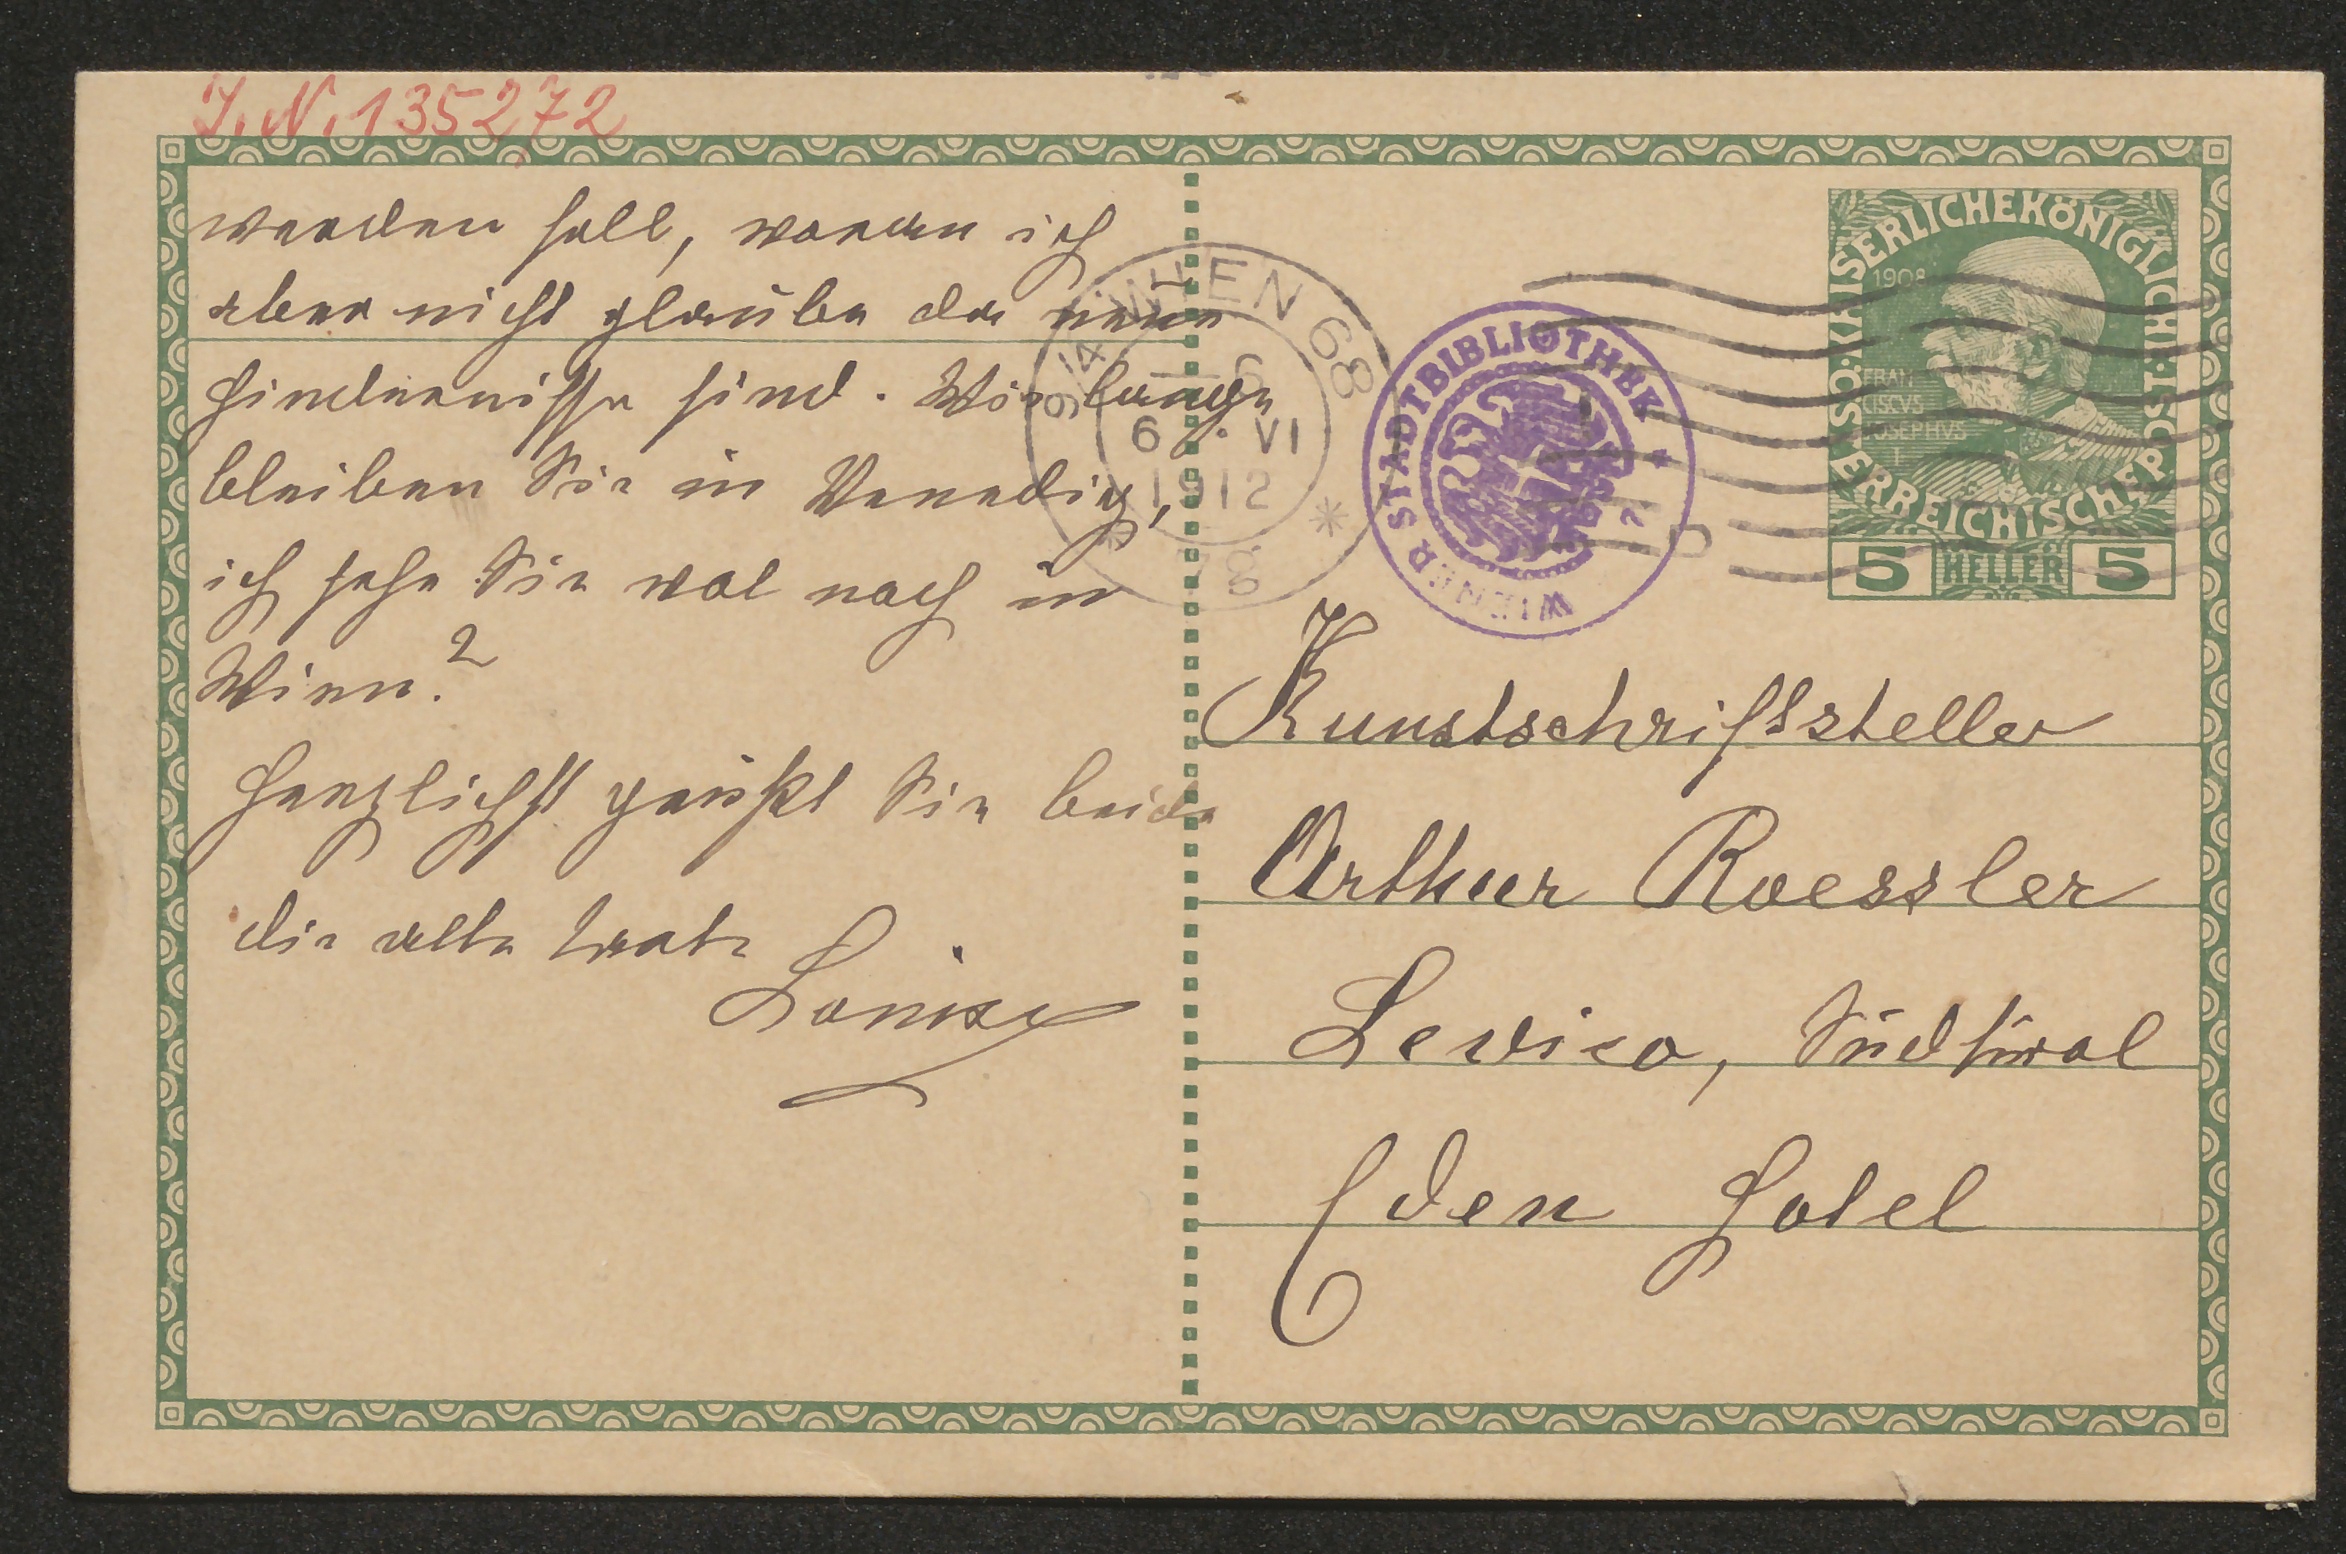 J. N. 135272
werden soll, woran ich
aber nicht glaube da neue
Hindernisse sind. Wie lange
bleiben Sie in Venedig,
ich sehe Sie wol noch in
Wien?
Herzlichst grüßt Sie beide
die alte
Louise
9/14 WIEN 68
6
6 · VI
1912
* 7g *
WIENER STADTBIBLIOTHEK *
KAISERLICHEKÖNIGLICHE
ÖSTERREICHISCHE POST
1908
FRAN
CISCVS
IOSEPHVS
I
5 HELLER 5
Kunstschriftsteller
Arthur Roessler
Levico, Südtirol
Eden Hotel